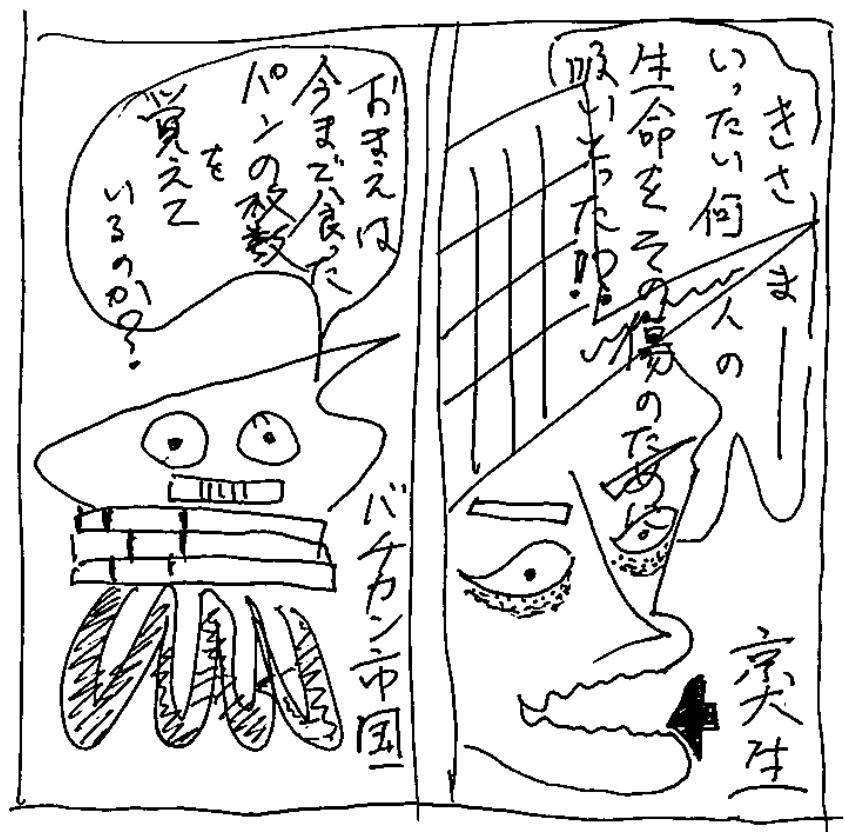 きさまー
いったい何人の
生命をその傷のために
吸いとった!?
京大生
おまえは
今まで食った
パンの枚数
を
覚えて
いるのか?
バチカン市国